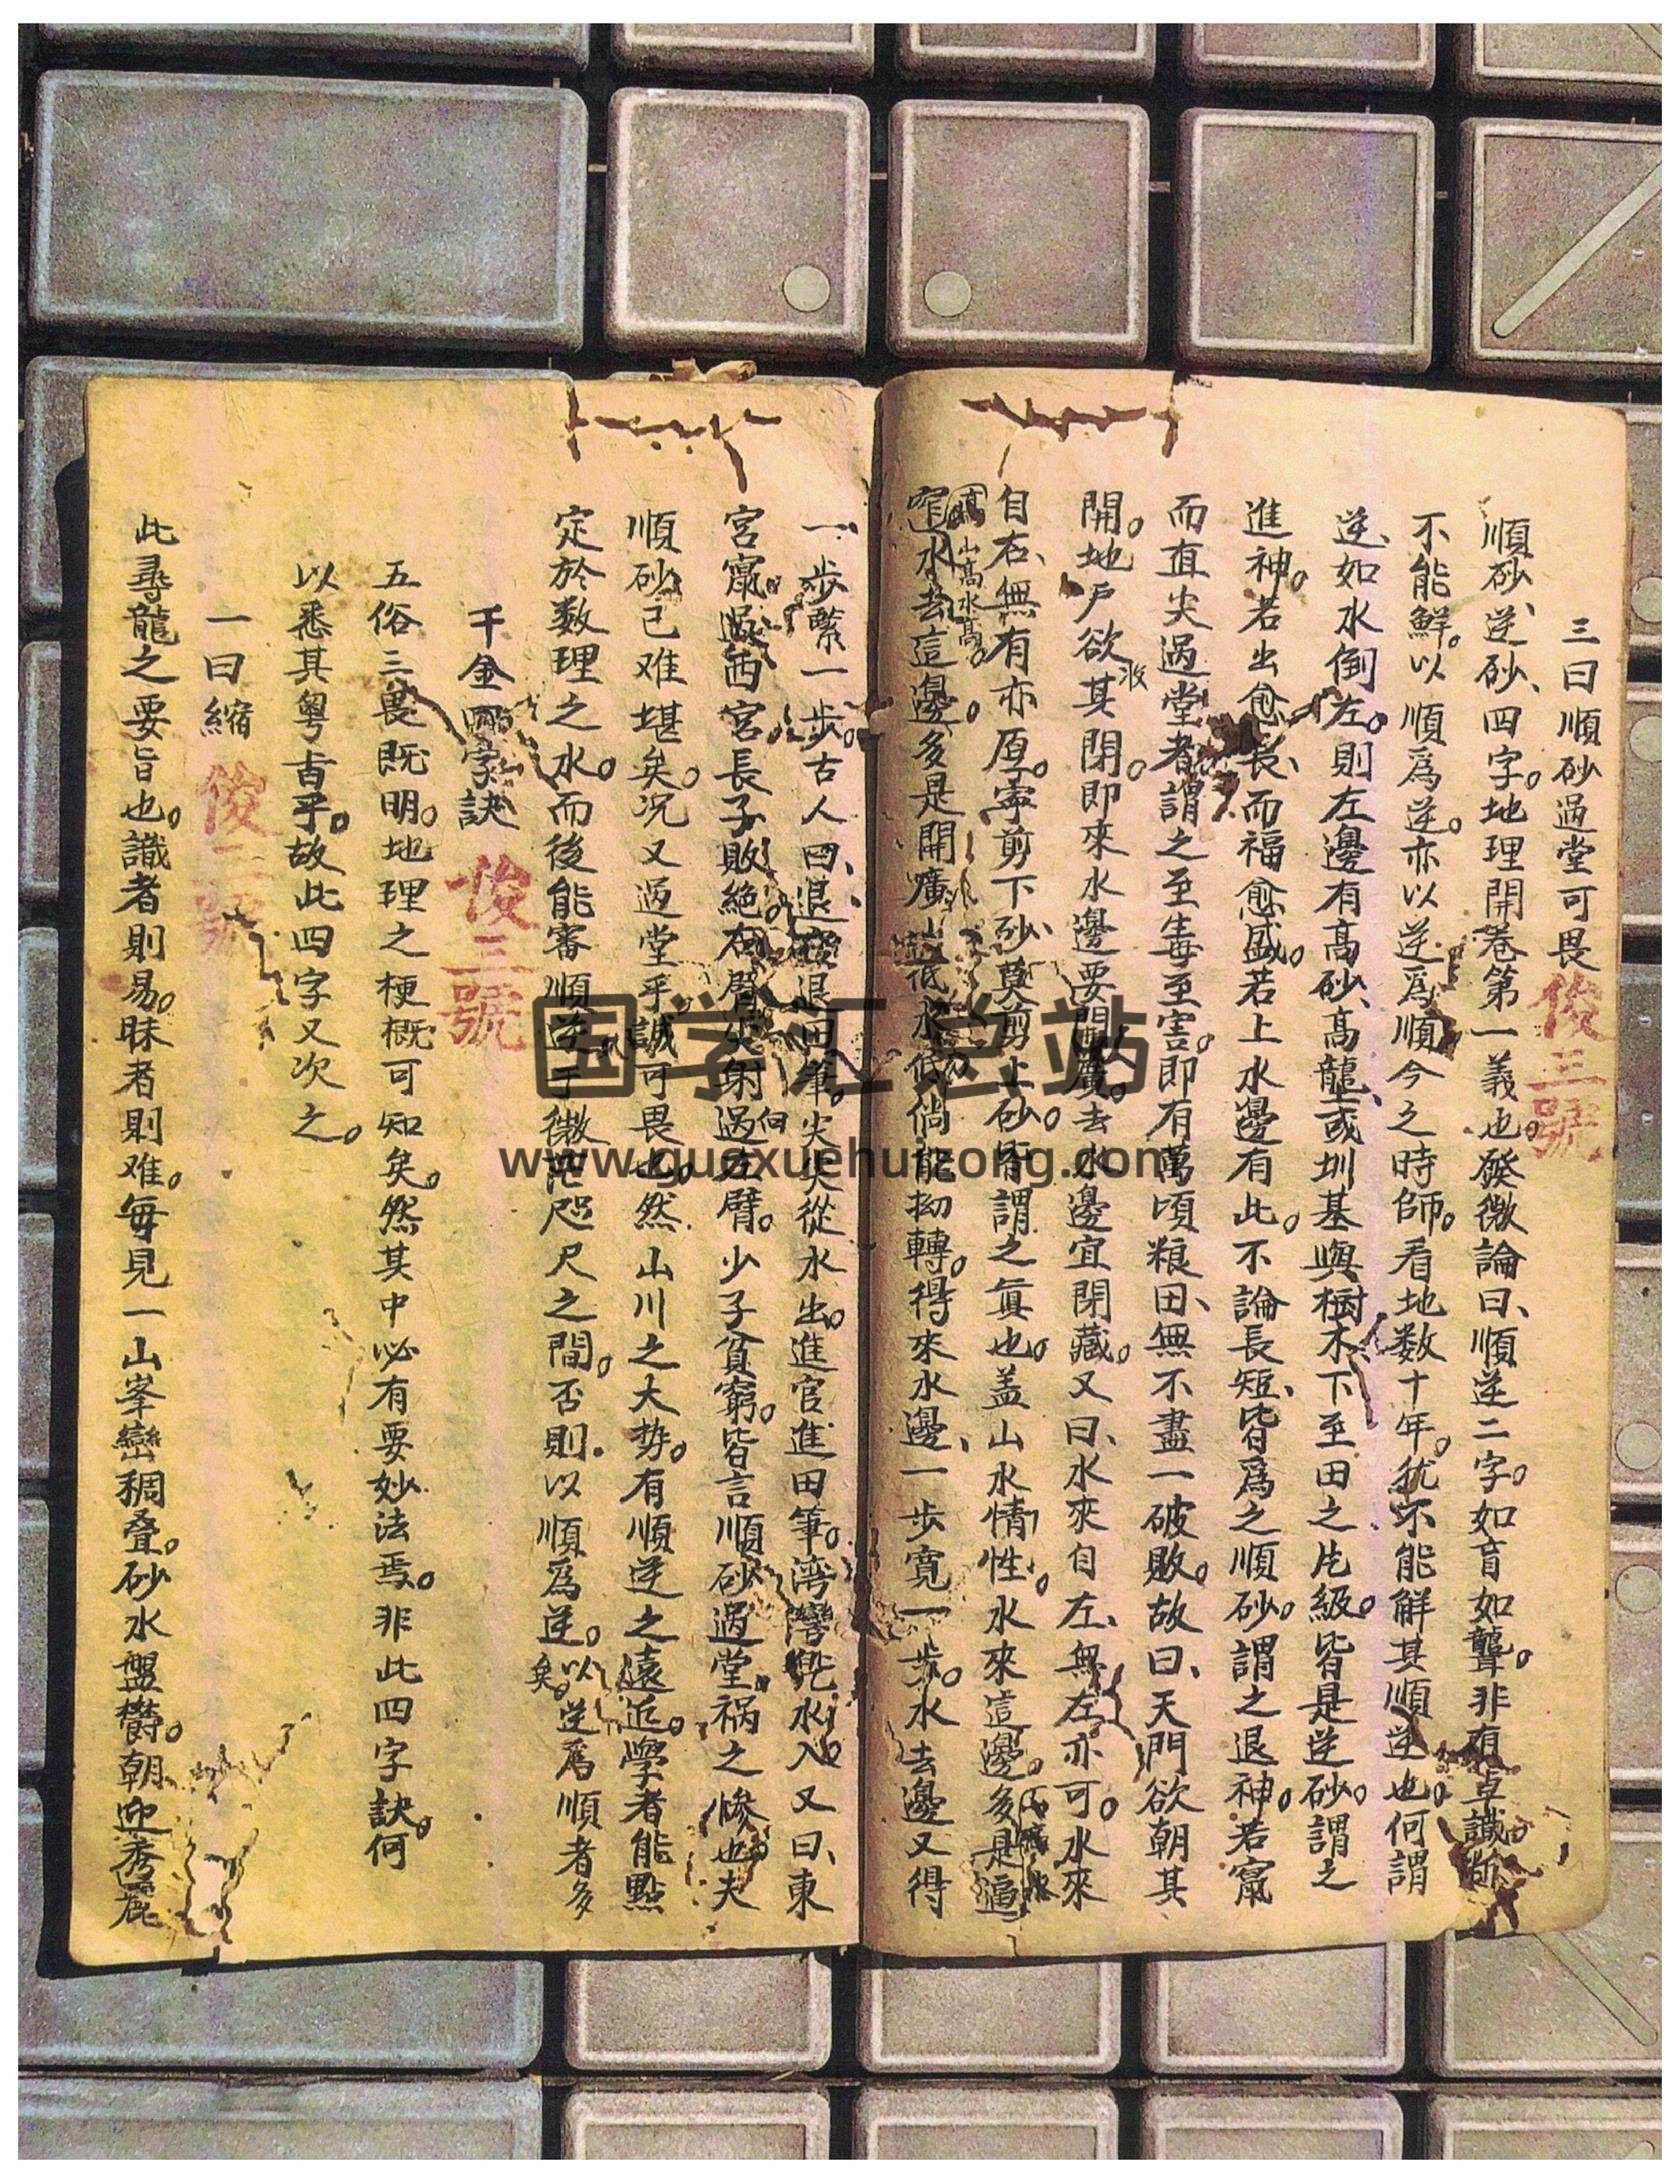 三曰順砂過堂可畏 俊三號
順砂、逆砂、四字。地理開卷第一義也。發微論曰、順逆二字。如盲如聾。非有卓識斷
不能鮮。以順為逆。亦以逆為順今之時師。看地数十年。犹不能解其順逆也。何謂
逆、如水倒左。則左邊有高砂、高壠、或圳基與樹木下至田之片級。皆是逆砂。謂之
進神。若出愈長、而福愈盛。若上水邊有此。不論長短、皆為之順砂。謂之退神。若窜
而直尖過堂者、謂之至毒至害。即有萬頃粮田、無不盡一破敗。故曰、天門欲朝其
開。地戶欲其閉。即來水邊要開廣。去水邊宜閉藏。又曰、水來自左、無左亦可。水來
自右、無有亦厚。寧剪下砂、莫剪上砂。皆謂之真也。盖山水情性。水來這邊。多是逼
高。山高水高。
窄。水去這邊。多是開廣山低水低倘能拗轉。得來水邊、一步寬一步。水去邊又得
一步緊一步。古人曰、退田筆。尖尖從水出。進官進田筆。湾灣兜水入。又曰、東
宮窜過西宮。長子敗絕。右臂尖射過左臂。少子貧窮。皆言順砂過堂。祸之慘也。夫
順砂已难堪矣。况又過堂乎。誠可畏也。然山川之大势。有順逆之遠近。學者能點
定於数理之水。而後能審順逆于微茫咫尺之間。否則。以順為逆。以逆為順者多矣。
千金四字訣 俊三號
五俗三畏既明。地理之梗概可知矣。然其中必有要妙法焉。非此四字訣。何
以悉其粤旨乎。故此四字又次之。
一曰縮 俊三號
此尋龍之要旨也。識者則易。昧者則难。每見一山峯巒稠叠。砂水盤欝。朝迎秀麗
国学汇总站
www.guoxuehuizong.com